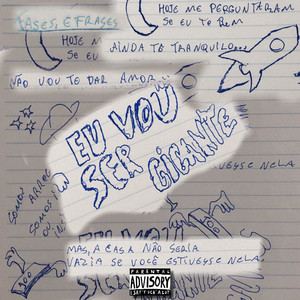 FASES, E FRASES
HOJE ME PERGUNTARAM
SE EU TO BEM
HOJE ME
SE EU
AINDA TO TRANQUILO...
NÃO VOU TE DAR AMOR
EU VOU
SER GIGANTE
VESSE NELA
MAS, A CASA NÃO SERIA
VAZIA SE VOCÊ ESTIVESSE NELA
PARENTAL
ADVISORY